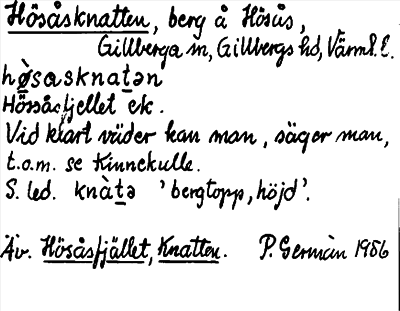 Hösåsknatten, berg å Hösås,
Gillberga sn, Gillbergs hd, Värml. l.
hø̀sasknatən
Hösåsfjellet ek.
Vid klart väder kan man, säger man,
t.o.m. se Kinnekulle.
S. led. knàtə 'bergtopp, höjd'.
Äv. Hösåsfjället, Knatten. P. Germán 1986